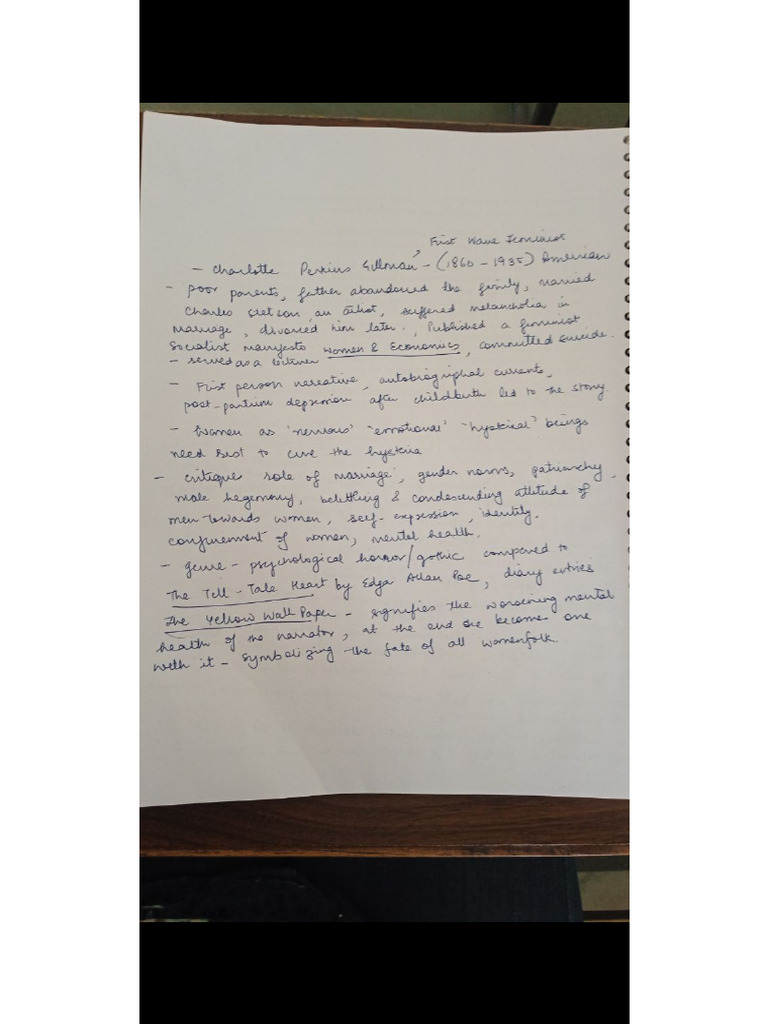 First Wave Feminist
- Charlotte Perkins Gillman - (1860 - 1935) American
- poor parents, father abandoned the family, married
Charles Stetson, an artist, suffered melancholia in
marriage, divorced him later. Published a feminist
Socialist manifesto Women & Economics, committed suicide.
- served as a lecturer
- First person narrative, autobiographical currents,
post-partum depression after childbirth led to the story
- Women as 'nervous' 'emotional' 'hysterical' beings
need rest to cure the hysteria
- critiques role of marriage, gender norms, patriarchy,
male hegemony, belittling & condescending attitude of
men towards women, self-expression, identity,
confinement of women, mental health.
- genre - psychological horror/gothic compared to
The Tell-Tale Heart by Edgar Allan Poe, diary entries
The Yellow Wall Paper - signifies the worsening mental
health of the narrator, at the end she becomes one
with it - symbolizing the fate of all womenfolk.